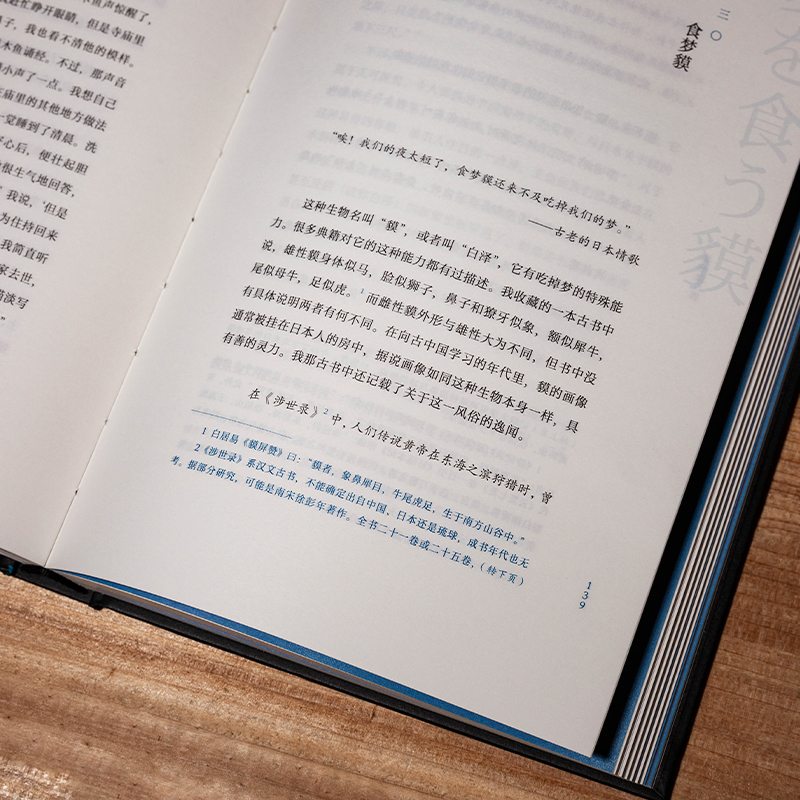 木鱼声惊醒了，
赶忙睁开眼睛，但是寺庙里
子，我也看不清他的模样。
木鱼诵经。不过，那声音
小声了一点。我想自己
庙里的其他地方做法
一觉睡到了清晨。洗
心后，便壮起胆
很生气地回答，
我说，“但是
为住持回来
我简直听
家去世，
淡写
”
三〇
食梦貘
を食う貘
“唉！我们的夜太短了，食梦貘还来不及吃掉我们的梦。”
——古老的日本情歌
这种生物名叫“貘”，或者叫“白泽”，它有吃掉梦的特殊能
力。很多典籍对它的这种能力都有过描述。我收藏的一本古书中
说，雄性貘身体似马，脸似狮子，鼻子和獠牙似象，额似犀牛，
尾似母牛，足似虎。1而雌性貘外形与雄性大为不同，但书中没
有具体说明两者有何不同。在向古中国学习的年代里，貘的画像
通常被挂在日本人的房中，据说画像如同这种生物本身一样，具
有善的灵力。我那古书中还记载了关于这一风俗的逸闻。
在《涉世录》2中，人们传说黄帝在东海之滨狩猎时，曾
1 白居易《貘屏赞》曰：“貘者，象鼻犀目，牛尾虎足，生于南方山谷中。”
2《涉世录》系汉文古书，不能确定出自中国、日本还是琉球，成书年代也无
考。据部分研究，可能是南宋徐彭年著作。全书二十一卷或二十五卷，（转下页）
139